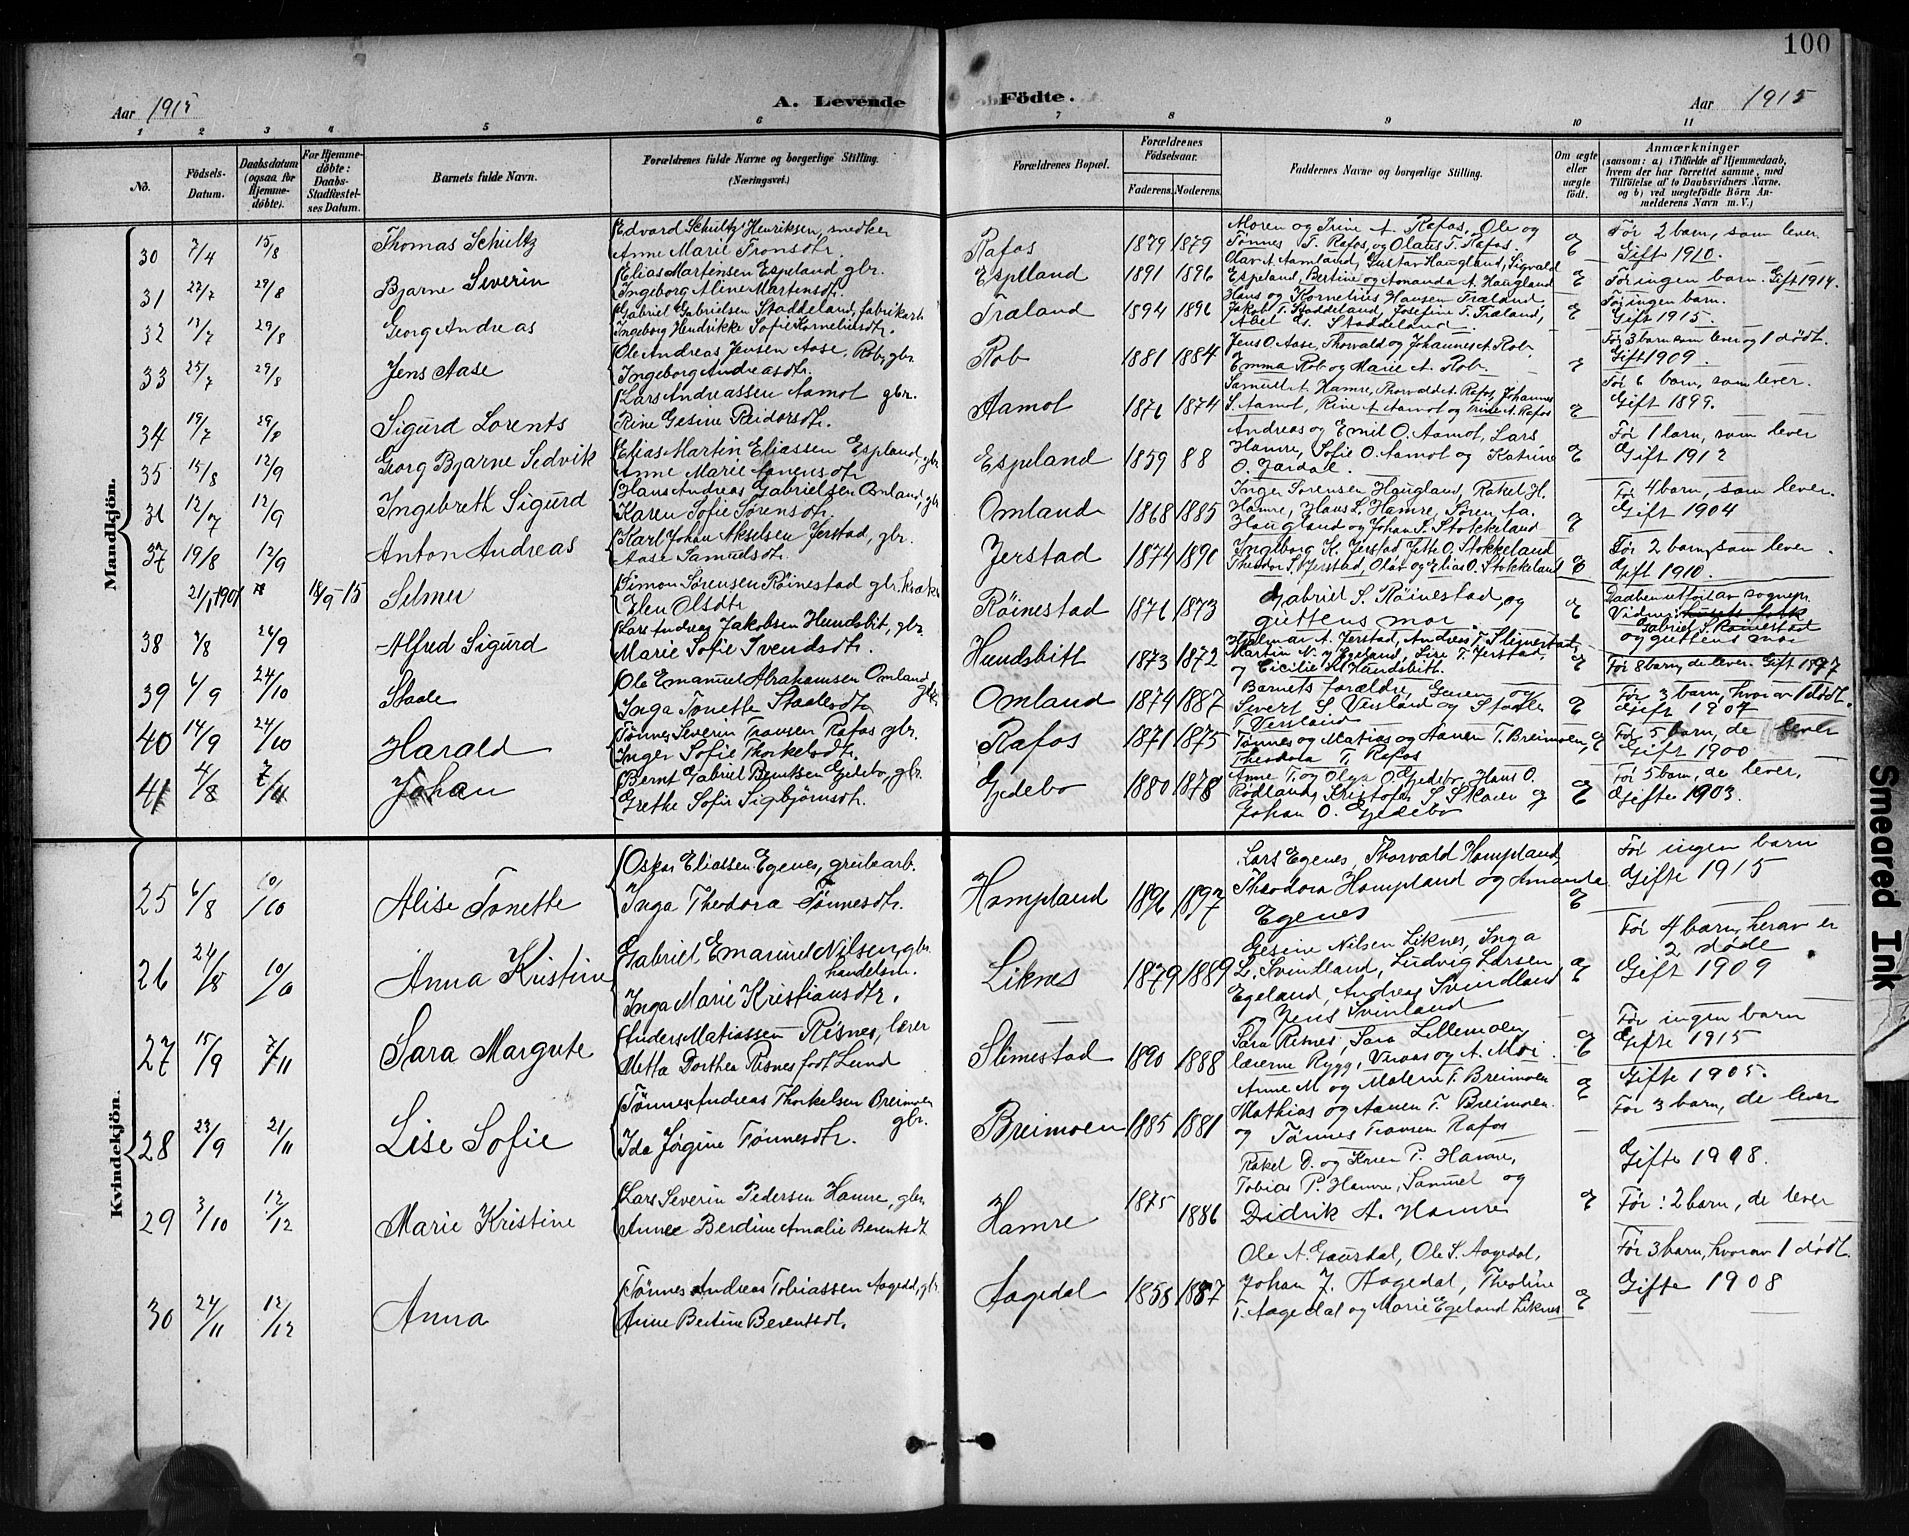 100
Aar 1915 A. Levende Födte. Aar 1915
1 2 3 4 5 6 7 8 9 10 11
No. Födsels-Datum. Daabsdatum (ogsaa for Hjemme-döbte). For Hjemme-döbte: Daabs-Stadfæstel-ses Datum. Barnets fulde Navn. Forældrenes fulde Navne og borgerlige Stilling. (Næringsvei.) Forældrenes Bopæl. Forældrenes Födselsaar. Faderens. Moderens. Faddernes Navne og borgerlige Stilling. Om ægte eller uægte födt. Anmærkninger (saasom: a) i Tilfælde af Hjemmedaab, hvem der har forrettet samme, med Tilföielse af to Daabsvidners Navne, og b) ved uægtefödte Börn An-melderens Navn m. V.)
Mandkjön.
30 7/4 15/8 Thomas Schultz Edvard Schultz Henriksen, snedker Rafos 1879 1879 Moren og Trine A. Rafos, Ole og E Før 2 barn, som lever.
Anne Marie Tronsdtr. Tønnes T. Rafos, og Olaus T. Rafos. Gift 1910.
31 22/7 29/8 Bjarne Severin Elias Martensen Espeland gbr. Espeland 1891 1896 Olav A. Aamland, Gustav Haugland, Sigvald E Før ingen barn. Gift 1914.
Ingeborg Aline Martensdtr. Espeland, Bertine og Amanda A. Haugland
32 12/7 29/8 Georg Andreas Gabriel Gabrielsen Staddeland, fabrikarb. Træland 1894 1896 Hans og Kornelius Hansen Træland, E Før ingen barn.
Ingeborg Hendrikke Sofie Korneliusdtr. Jakob T. Staddeland, Josefine T. Træland, Gift 1915.
Abel G. Staddeland.
33 25/7 29/8 Jens Aase Ole Andreas Jensen Aase, Rob, gbr. Rob 1881 1884 Jens O. Aase, Thorvald og Johannes A. Rob. E Før 3 barn som lever og 1 dødt.
Ingeborg Andreasdtr. Emma Rob og Marie A. Rob. Gift 1909.
34 19/7 29/8 Sigurd Lorents Lars Andreassen Aamot gbr. Aamot 1871 1874 Samuel A. Hamre, Thorvald A. Rafos, Johannes E Før 6 barn, som lever.
Rine Gesine Reidarsdtr. S. Aamot, Rine A. Aamot og Trine A. Rafos Gift 1899.
35 15/8 12/9 Georg Bjarne Sedvik Elias Martin Eliassen Espeland, gbr. Espeland 1859 88 Andreas og Emil O. Aamot, Lars E Før 1 barn, som lever
Anne Marie Hamre, Sofie O. Aamot og Katrine Gift 1912
O. Jerdal.
36 12/7 12/9 Ingebreth Sigurd Hans Andreas Gabrielsen Omland, gbr. Omland 1868 1885 Inger Sørensen Haugland, Rakel H. E Før 4 barn, som lever.
Karen Sofie Sørensdtr. Hamre, Hans L. Hamre, Søren Aa. Gift 1904
Haugland og Johan S. Stokkeland
37 19/8 12/9 Anton Andreas Karl Johan Akselsen Jerstad, gbr. Jerstad 1874 1890 Ingeborg K. Jerstad, Jette O. Stokkeland E Før 2 barn, som lever.
Aase Samuelsdtr. Theodor S. Jerstad, Olav og Elias O. Stokkeland Gift 1910.
21/1 1901 18/9-15 Selmer Simon Sørensen Röinestad gbr. Röinestad 1871 1873 Gabriel S. Röinestad, og E Daaben utført av sognepr.
Elen Olsdtr. guttens mor. Vidner: Gabriel S. Röinestad
og guttens mor
38 7/8 26/9 Alfred Sigurd Lars Andreas Jakobsen Hundsbit, gbr. Hundsbitt 1873 1872 Hjelmar A. Jerstad, Andreas T. Slimestad, E Før 8 barn, de lever. Gift 1897
Marie Sofie Svendsdtr. Martin N. Egeland, Lise T. Jerstad,
og Cicilie K. Hundsbitt
39 6/9 24/10 Staale Ole Emanuel Abrahamsen Omland gbr. Omland 1874 1887 Barnets forældre, og E Før 3 barn, hvorav 1 dødt.
Inga Tonette Staalesdtr Sivert S. Versland og Staale Gift 1907
T. Versland
40 14/9 24/10 Harald Tønnes Severin Tronsen Rafos gbr. Rafos 1871 1875 Tønnes og Matias og Aanen T. Breimoen, E Før 5 barn, de lever
Inger Sofie Thorkelsdtr. Theodora T. Rafos Gift 1900
41 4/8 7/11 Johan Bernt Gabriel Berntsen Gjedebo, gbr. Gjedebo 1880 1878 Anne T. og Olga O. Gjedebo, Hans O. E Før 5 barn, de lever.
Grethe Sofie Sigbjørnsdtr. Rødland, Kristofer S. Skaien og Gifte 1903.
Johan O. Gjedebo
Kvindekjön.
25 6/8 10/10 Alise Tonette Oskar Eliassen Egenes, grubearb. Hompland 1896 1897 Lars Egenes, Thorvald Hompland, E Før ingen barn
Inga Theodora Tønnesdtr. Theodora Hompland og Amanda Gifte 1915
Egenes
26 24/8 10/10 Anna Kristine Gabriel Emanuel Nilsen, gbr. Liknes 1879 1889 Gesine Nilsen Liknes, Inga E Før 4 barn, herav er
handelsm. L. Svindland, Ludvig Larsen 2 døde
Inga Marie Kristiansdtr. Egeland, Andreas Svindland Gift 1909
og Jens Svinland
27 15/9 7/11 Sara Margrete Anders Matiassen Risnes, lærer Slimestad 1890 1888 Sara Risnes, Sara Lillemoen, E Før ingen barn
Metta Dorthea Risnes født Lund lærerne Rygg, Veraas og A. Moi. Gifte 1915
28 23/9 21/11 Lise Sofie Tønnes Andreas Thorkelsen Breimoen gbr. Breimoen 1885 1881 Anne M. og Malene T. Breimoen E Gifte 1905.
Ida Jørgine Tønnesdtr. Mathias og Aanen T. Breimoen Før 3 barn, de lever
og Tønnes Tronsen Rafos
29 3/10 12/12 Marie Kristine Lars Severin Pedersen Hamre, gbr. Hamre 1875 1886 Rakel D. og Karen P. Hamre, E Gifte 1908.
Anne Berdine Amalie Berentsdt. Tobias P. Hamre, Samuel og Før: 2 barn, de lever
Didrik A. Hamre
30 24/11 12/12 Anna Tønnes Andreas Tobiassen Aagedal, gbr. Aagedal 1858 1887 Ole A. Gaursdal, Ole S. Aagedal, E Før 3 barn, hvorav 1 dødt.
Anne Bertine Berentsdt. Johan J. Aagedal, Theoline Gifte 1908
T. Aagedal og Marie Egeland Liknes
Smeared Ink